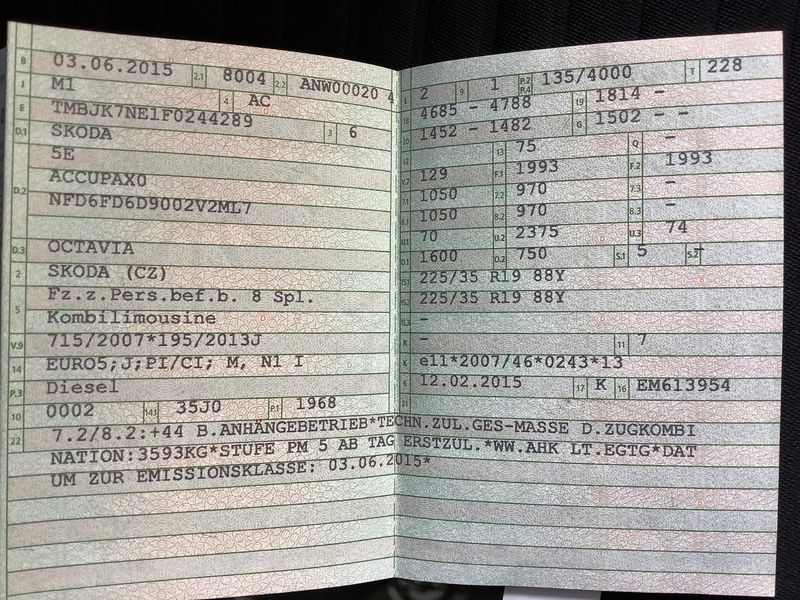 B 03.06.2015 2.1 8004 2.2 ANW00020 4
J M1 4 AC
E TMBJK7NE1F0244289
D.1 SKODA 3 6
5E
D.2 ACCUPAX0
NFD6FD6D9002V2ML7
D.3 OCTAVIA
2 SKODA (CZ)
5 Fz.z.Pers.bef.b. 8 Spl.
Kombilimousine
V.9 715/2007*195/2013J
14 EURO5;J;PI/CI; M, N1 I
P.3 Diesel
10 0002 14.1 35J0 P.1 1968
L 2 9 1 P.2 P.4 135/4000 T 228
18 4685 - 4788 19 1814 -
20 1452 - 1482 G 1502 - -
12 13 75 Q -
V.7 129 F.1 1993 F.2 1993
7.1 1050 7.2 970 7.3 -
8.1 1050 8.2 970 8.3 -
U.1 70 U.2 2375 U.3 74
O.1 1600 O.2 750 S.1 5 S.2 -
15.1 225/35 R19 88Y
15.2 225/35 R19 88Y
15.3 -
R - 11 7
K e11*2007/46*0243*13
6 12.02.2015 17 K 16 EM613954
21
22 7.2/8.2:+44 B.ANHÄNGEBETRIEB*TECHN.ZUL.GES-MASSE D.ZUGKOMBI
NATION:3593KG*STUFE PM 5 AB TAG ERSTZUL.*WW.AHK LT.EGTG*DAT
UM ZUR EMISSIONSKLASSE: 03.06.2015*